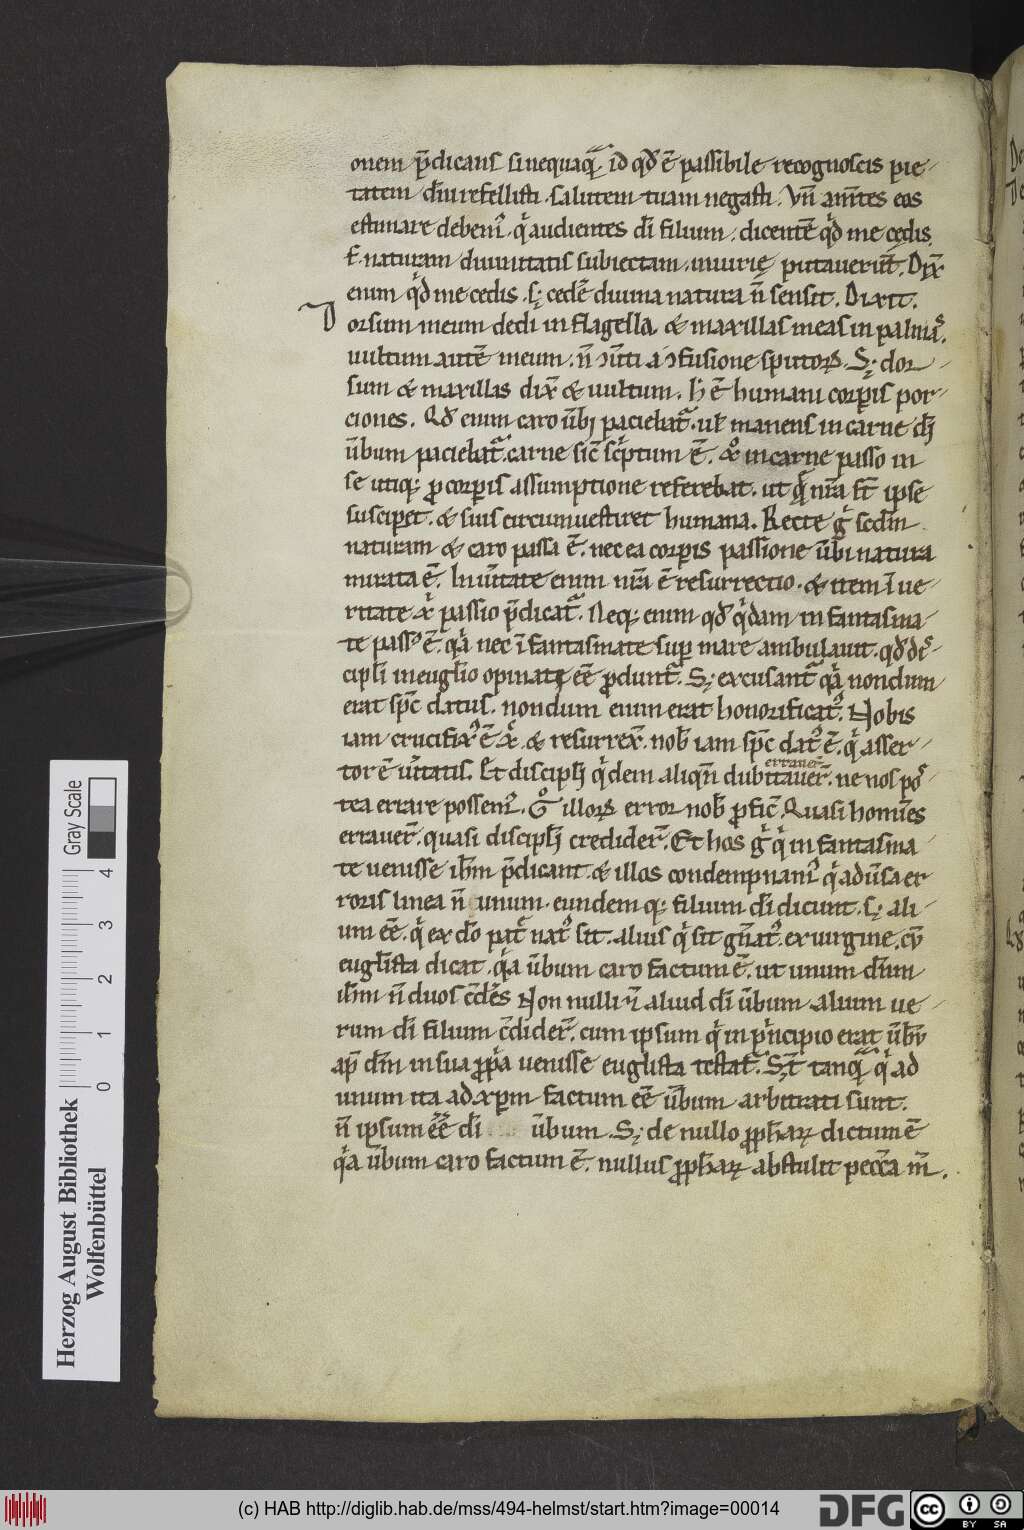 onem p̄dicans sinequaq̄ id qđ ē passibile recognoscis pie-
tatem diui refellisti. salutem tuam negasti. Vn̄ am̄tes eos
estimare debem᷒. qͥ audientes dī filium. dicentē qͥd me cędis.
naturam diuinitatis subiectam iniurię putauerūt. Dix̄
enim qͥd me cedis. s; cedē diuina natura n̄ sensit. Dixit.
Dorsum meum dedi in flagella. & maxillas meas in palmas.
uultum autē meum. n̄ sputoꝝ. S; dor-
sum & maxillas dix̄ & uultum. h̄ ē humani corꝑis por-
ciones. Qđ enim caro ūbi paciebat᷑. manens in carne dī
ūbum paciebat᷑. carne sic̄ scͥptum ē. in carne passo in
se utiq; ꝓ corꝑis assumptione referebat. ut nr̄a ipse
susciꝑet. & suis circumuestiret humana. Recte gͥ scd̄m
naturam & caro passa ē. nec ea corꝑis passione ūbi natura
mutata ē. In ūitate enim nr̄a ē resurrectio. & item ī ue-
ritate passio p̄dicat᷑. Neq; enim qđ qͥdam in fantasma-
te pass᷒ ē. qͣa nec ī fantasmate suꝑ mare ambulauit. qđ dis-
cipli in euglīo opinati eē ꝓdunt᷑. S; excusant᷑ qͣa nondum
erat spc̄ datus. nondum enim erat honorificat᷒. Nobis
iam crucifix᷒ ē & resurrex̄. nob̄ iam spc̄ dat᷒ ē. qͥ asser-
tor ē ūitatis. Et discipli qͥdem aliqn̄ dubitauer̄. ne nos pos-
errauer̄
tea errare possem᷒. illoꝝ error nob̄ ꝓfic̄. Quasi homīes
errauer̄. quasi discipli credider̄. Et hos gͥ qͥ in fantasma-
te uenisse ih̄m p̄dicant. & illos condempnam᷒ qͥ aduūsa er-
roris linea n̄ unum. eundem q; filium dī dicunt. s; ali-
um eē. qͥ ex do patͥ nat᷒ sit. alius qͥ sit gn̄at᷒ ex uirgine.
euglīsta dicat. qͣa ūbum caro factum ē. ut unum dn̄m
ih̄m n̄ duos c̄des. Non nulli aliud dī ūbum. alium ue-
rum dī filium c̄dider̄. cum ipsum qͥ in pͥncipio erat ūbū
ap̄ dm̄ in sua ꝓpͥa uenisse euglista testat᷑. S;t tanq̄ qͥ ad
unum ita ad xp̄m factum eē ūbum arbitrati sunt.
n̄ ipsum eē dī ūbum. S; de nullo ꝓph̄aꝝ dictum ē
qͣa ūbum caro factum ē. nullus ꝓph̄aꝝ abstulit pecc̄a m̄.
Herzog August Bibliothek
Wolfenbüttel
Gray Scale
0 1 2 3 4
(c) HAB http://diglib.hab.de/mss/494-helmst/start.htm?image=00014
DFG
cc BY SA